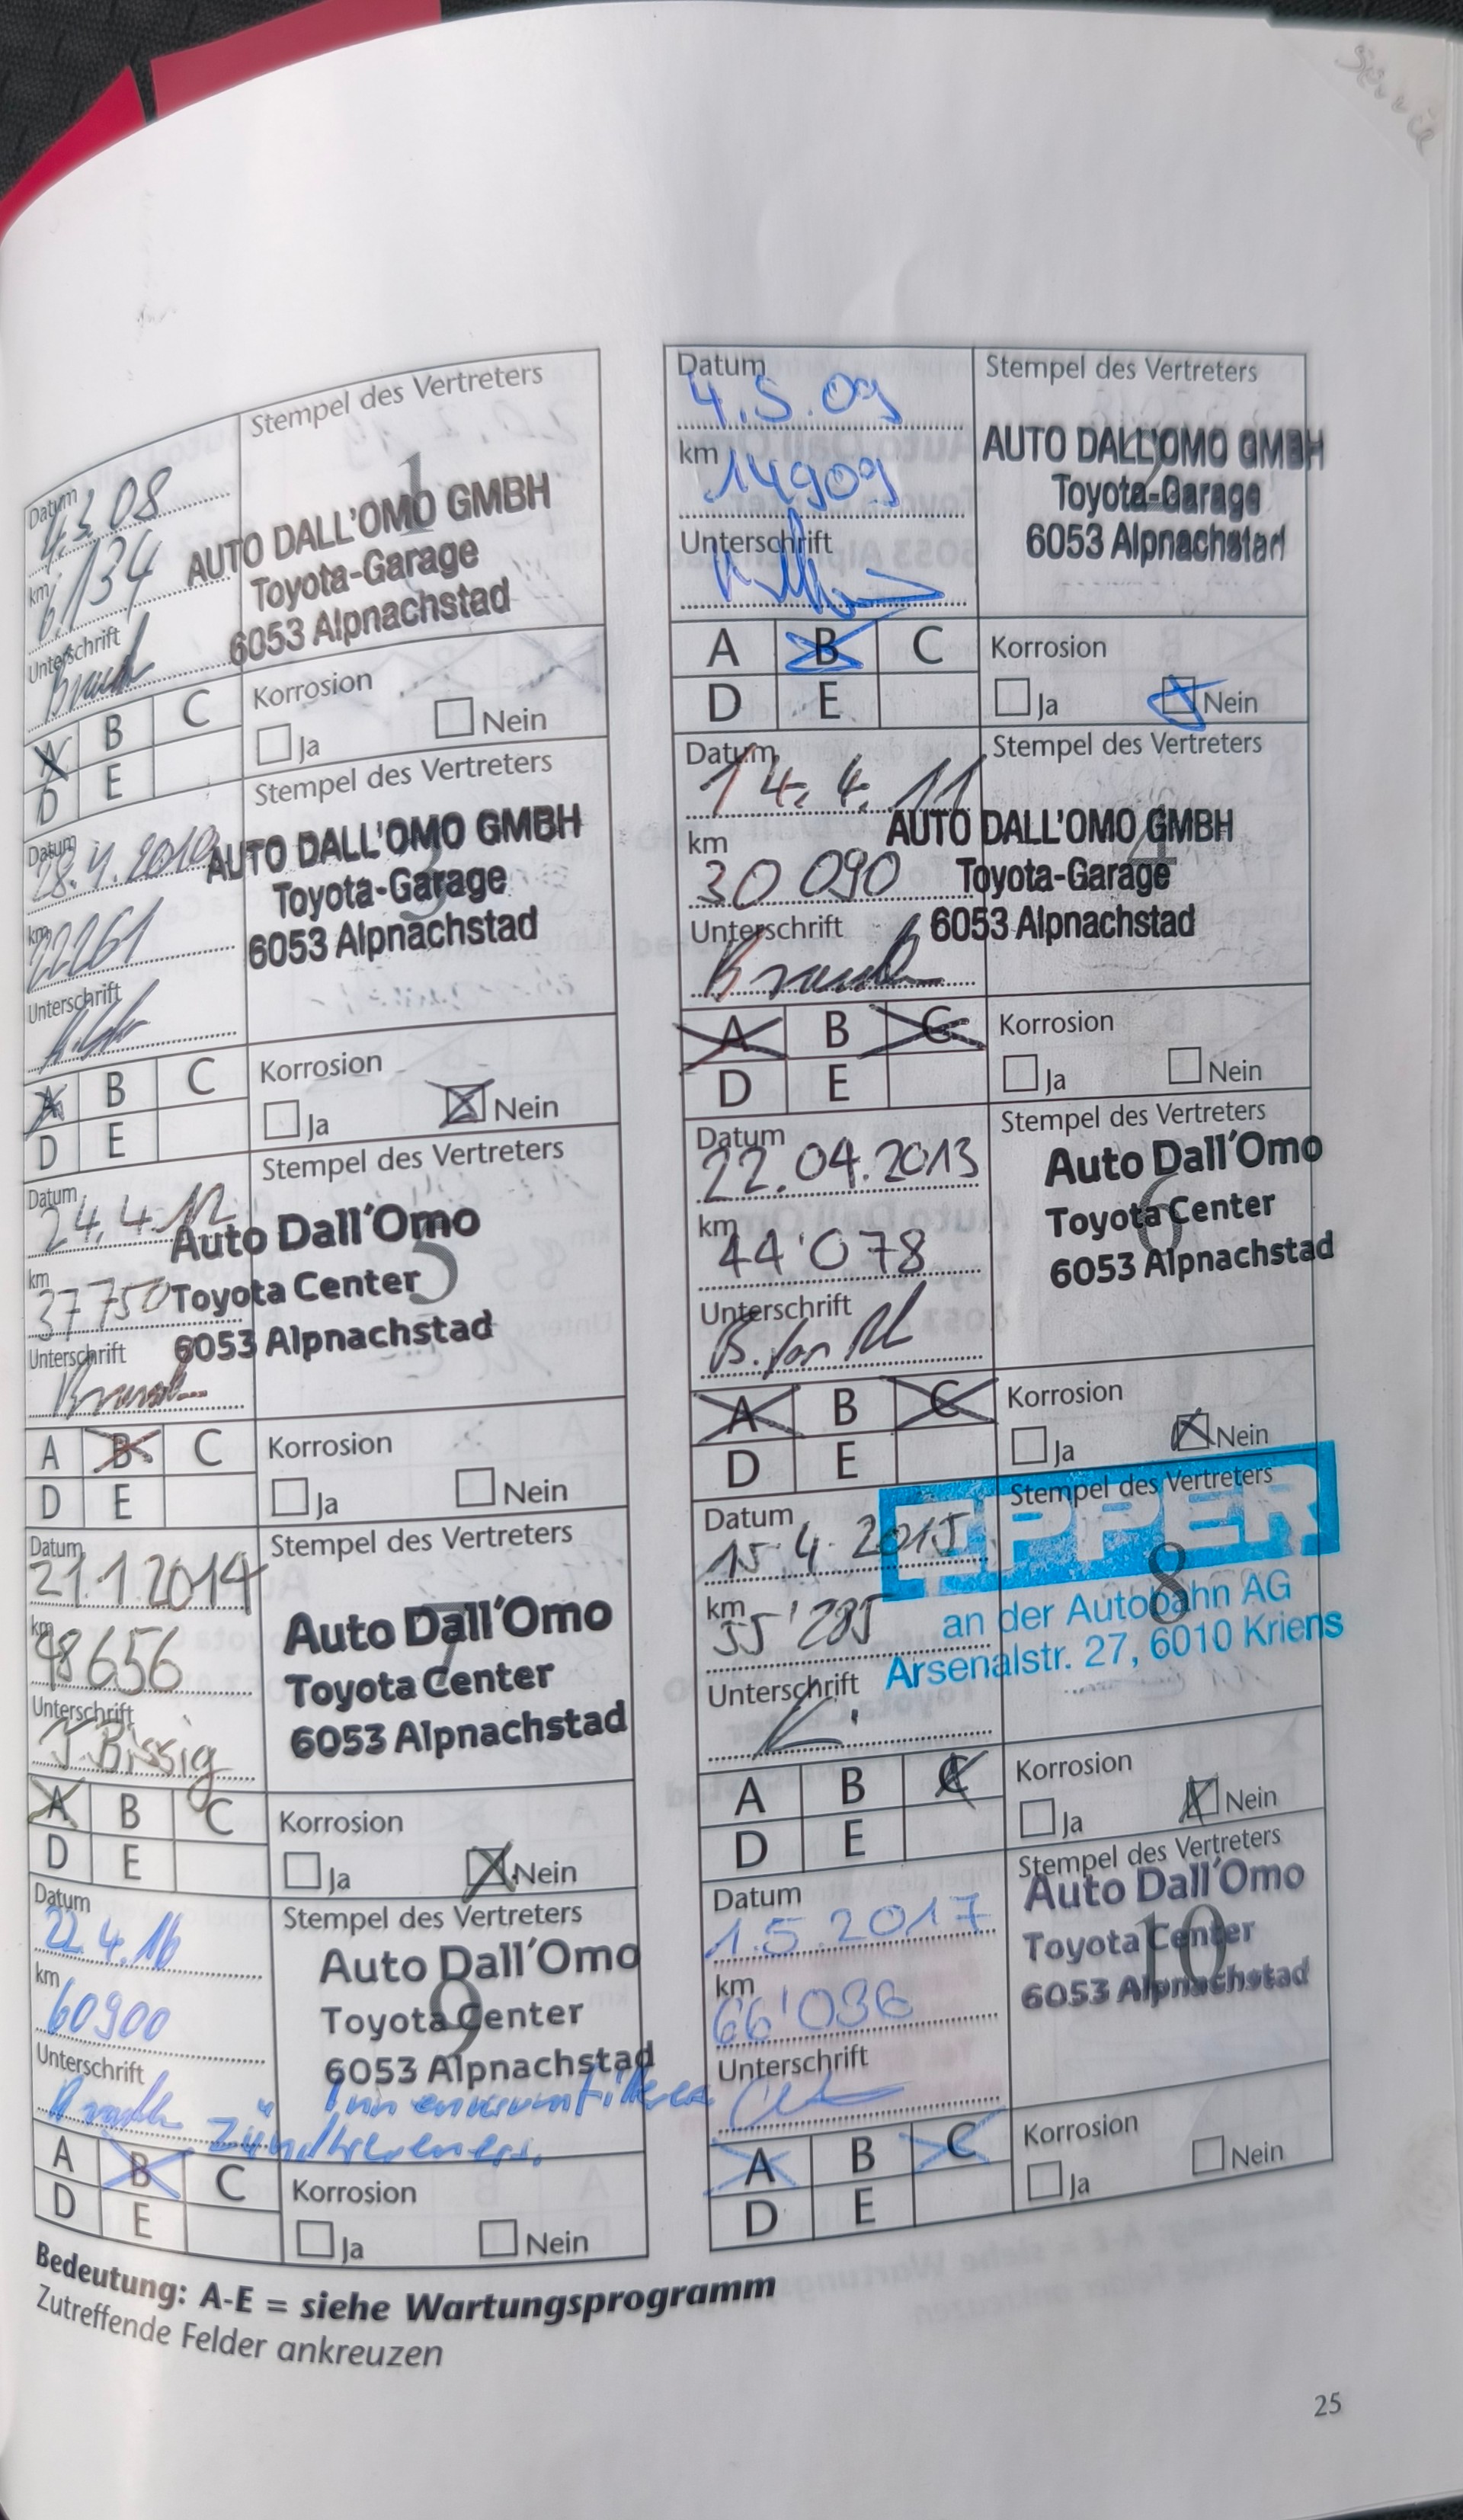 Service
Datum
4.3.08
km
6134
Unterschrift
Stempel des Vertreters
1
AUTO DALL'OMO GMBH
Toyota-Garage
6053 Alpnachstad
A B C
D E
Korrosion
Ja Nein
Datum
4.5.09
km
14909
Unterschrift
Stempel des Vertreters
2
AUTO DALL'OMO GMBH
Toyota-Garage
6053 Alpnachstad
A B C
D E
Korrosion
Ja Nein
Datum
28.4.2010
km
22261
Unterschrift
Stempel des Vertreters
3
AUTO DALL'OMO GMBH
Toyota-Garage
6053 Alpnachstad
A B C
D E
Korrosion
Ja Nein
Datum
14.4.11
km
30 090
Unterschrift
Stempel des Vertreters
4
AUTO DALL'OMO GMBH
Toyota-Garage
6053 Alpnachstad
A B C
D E
Korrosion
Ja Nein
Datum
24.4.12
km
37750
Unterschrift
Stempel des Vertreters
5
Auto Dall'Omo
Toyota Center
6053 Alpnachstad
A B C
D E
Korrosion
Ja Nein
Datum
22.04.2013
km
44'078
Unterschrift
Stempel des Vertreters
6
Auto Dall'Omo
Toyota Center
6053 Alpnachstad
A B C
D E
Korrosion
Ja Nein
Datum
21.1.2014
km
48656
Unterschrift
J. Bissig
Stempel des Vertreters
7
Auto Dall'Omo
Toyota Center
6053 Alpnachstad
A B C
D E
Korrosion
Ja Nein
Datum
15.4.2015
km
55'285
Unterschrift
Stempel des Vertreters
8
EPPER
an der Autobahn AG
Arsenalstr. 27, 6010 Kriens
A B C
D E
Korrosion
Ja Nein
Datum
22.4.16
km
60900
Unterschrift
Stempel des Vertreters
9
Auto Dall'Omo
Toyota Center
6053 Alpnachstad
Innenraumfilter
Zündkerzen
A B C
D E
Korrosion
Ja Nein
Datum
1.5.2017
km
66'036
Unterschrift
Stempel des Vertreters
10
Auto Dall'Omo
Toyota Center
6053 Alpnachstad
A B C
D E
Korrosion
Ja Nein
Bedeutung: A-E = siehe Wartungsprogramm
Zutreffende Felder ankreuzen
25